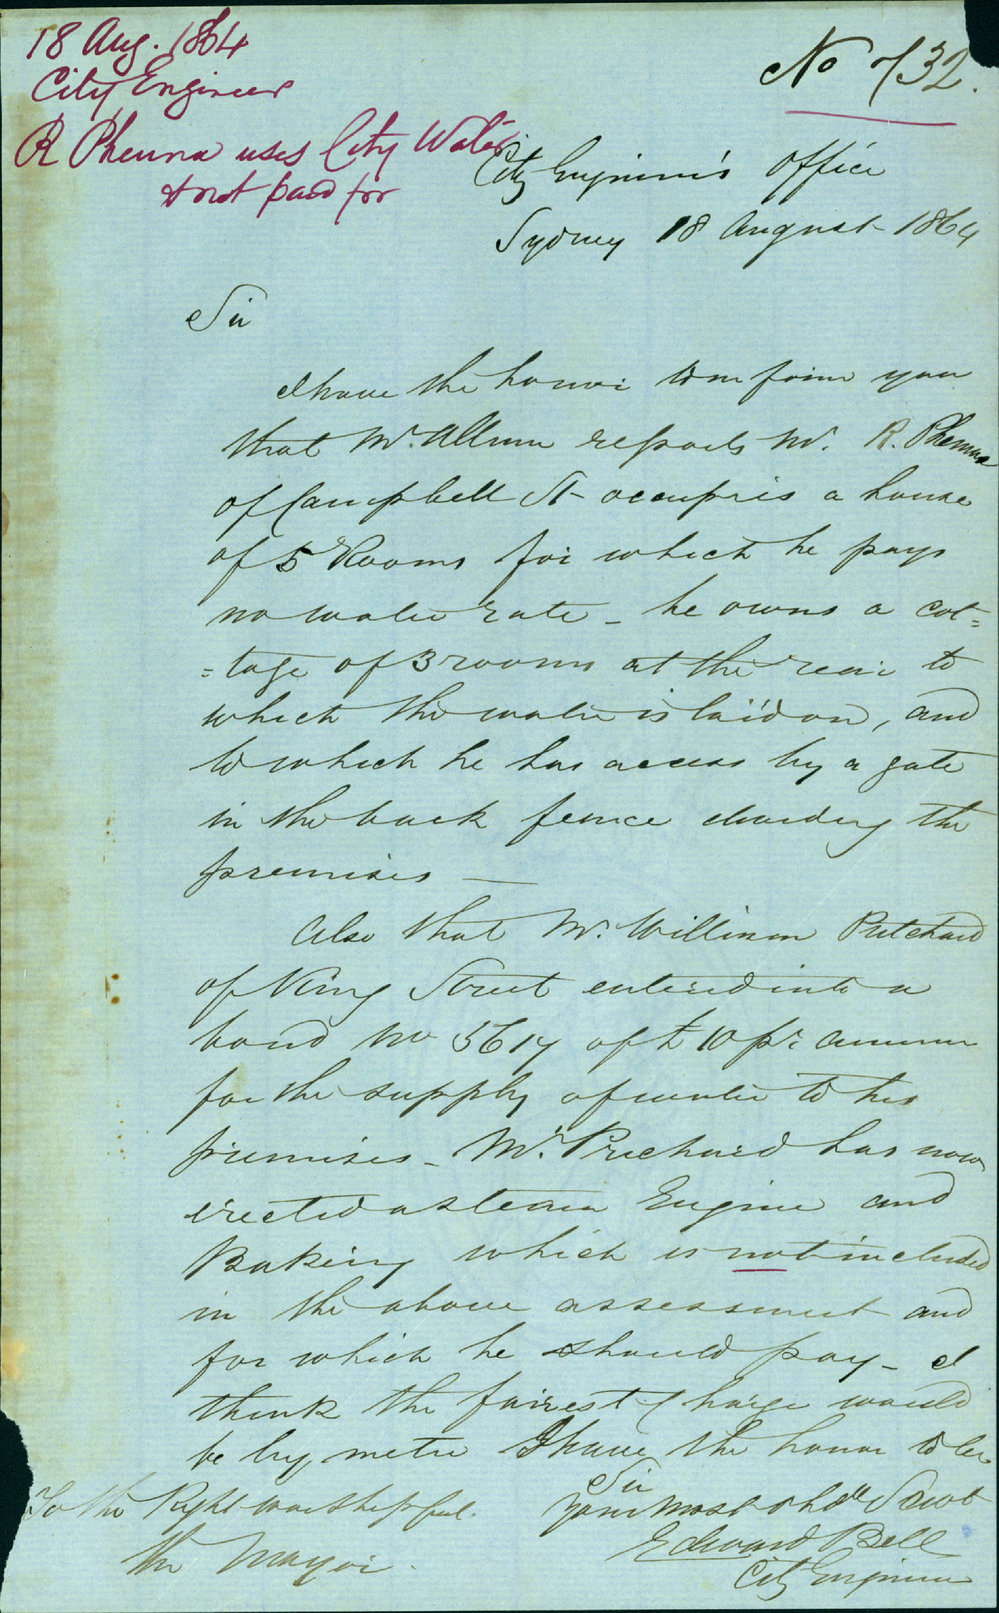 18 Aug. 1864
City Engineer
R Phenna uses City Water
& not paid for
No 732.
City Engineer's Office
Sydney 18 August 1864
Sir
I have the honor to inform you
that Mr. Allum reports Mr. R. Phenna
of Campbell St occupies a house
of 5 Rooms for which he pays
no water rate _ he owns a cot=
=tage of 3 rooms at the rear to
which the water is laid on, and
to which he has access by a gate
in the back fence dividing the
premises —
Also that Mr. William Pritchard
of King Street entered into a
bond No 5617 of £10 pr. annum
for the supply of water to his
premises _ Mr. Prichard has now
erected a steam Engine and
Bakery which is not included
in the above assessment and
for which he should pay _ I
think the fairest Charge would
be by metre I have the honor to be
Sir
Your most obdt Servt
Edward Bell
City Engineer
To the Right Worshipful.
the Mayor.